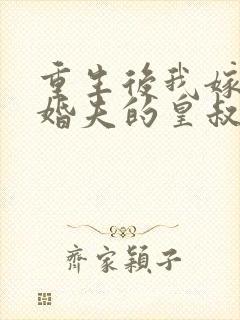 重生後我嫁
婚夫的皇叔
齊家穎子